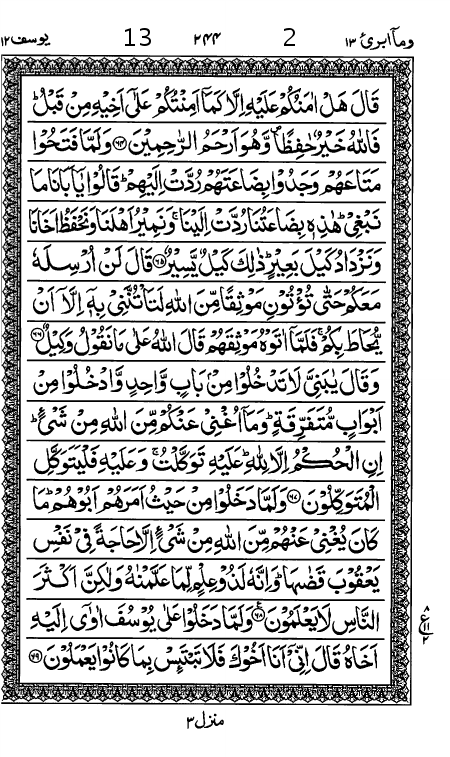 وما ابرئ ١٣ 2 ٢٤٤ 13 يوسف ١٢
قَالَ هَلْ اٰمَنُكُمْ عَلَيْهِ اِلَّا كَمَاۤ اَمِنْتُكُمْ عَلٰۤى اَخِيْهِ مِنْ قَبْلُ ؕ
فَاللّٰهُ خَيْرٌ حٰفِظًا ۪ وَّهُوَ اَرْحَمُ الرّٰحِمِيْنَ ﴿۶۴﴾ وَلَمَّا فَتَحُوْا
مَتَاعَهُمْ وَجَدُوْا بِضَاعَتَهُمْ رُدَّتْ اِلَيْهِمْ ؕ قَالُوْا يٰۤاَبَانَا مَا
نَبْغِيْ ؕ هٰذِهٖ بِضَاعَتُنَا رُدَّتْ اِلَيْنَا ۚ وَنَمِيْرُ اَهْلَنَا وَنَحْفَظُ اَخَانَا
وَنَزْدَادُ كَيْلَ بَعِيْرٍ ؕ ذٰلِكَ كَيْلٌ يَّسِيْرٌ ﴿۶۵﴾ قَالَ لَنْ اُرْسِلَهٗ
مَعَكُمْ حَتّٰى تُؤْتُوْنِ مَوْثِقًا مِّنَ اللّٰهِ لَتَاْتُنَّنِيْ بِهٖۤ اِلَّاۤ اَنْ
يُّحَاطَ بِكُمْ ۚ فَلَمَّاۤ اٰتَوْهُ مَوْثِقَهُمْ قَالَ اللّٰهُ عَلٰى مَا نَقُوْلُ وَكِيْلٌ ﴿۶۶﴾
وَقَالَ يٰبَنِيَّ لَا تَدْخُلُوْا مِنْۢ بَابٍ وَّاحِدٍ وَّادْخُلُوْا مِنْ
اَبْوَابٍ مُّتَفَرِّقَةٍ ؕ وَمَاۤ اُغْنِيْ عَنْكُمْ مِّنَ اللّٰهِ مِنْ شَيْءٍ ؕ
اِنِ الْحُكْمُ اِلَّا لِلّٰهِ ؕ عَلَيْهِ تَوَكَّلْتُ ۚ وَعَلَيْهِ فَلْيَتَوَكَّلِ
الْمُتَوَكِّلُوْنَ ﴿۶۷﴾ وَلَمَّا دَخَلُوْا مِنْ حَيْثُ اَمَرَهُمْ اَبُوْهُمْ ؕ مَا
كَانَ يُغْنِيْ عَنْهُمْ مِّنَ اللّٰهِ مِنْ شَيْءٍ اِلَّا حَاجَةً فِيْ نَفْسِ
يَعْقُوْبَ قَضٰىهَا ؕ وَاِنَّهٗ لَذُوْ عِلْمٍ لِّمَا عَلَّمْنٰهُ وَلٰكِنَّ اَكْثَرَ
النَّاسِ لَا يَعْلَمُوْنَ ﴿۶۸﴾ وَلَمَّا دَخَلُوْا عَلٰى يُوْسُفَ اٰوٰۤى اِلَيْهِ
اَخَاهُ قَالَ اِنِّيْۤ اَنَا اَخُوْكَ فَلَا تَبْتَئِسْ بِمَا كَانُوْا يَعْمَلُوْنَ ﴿۶۹﴾
٨
ع ١١
٢
منزل ٣